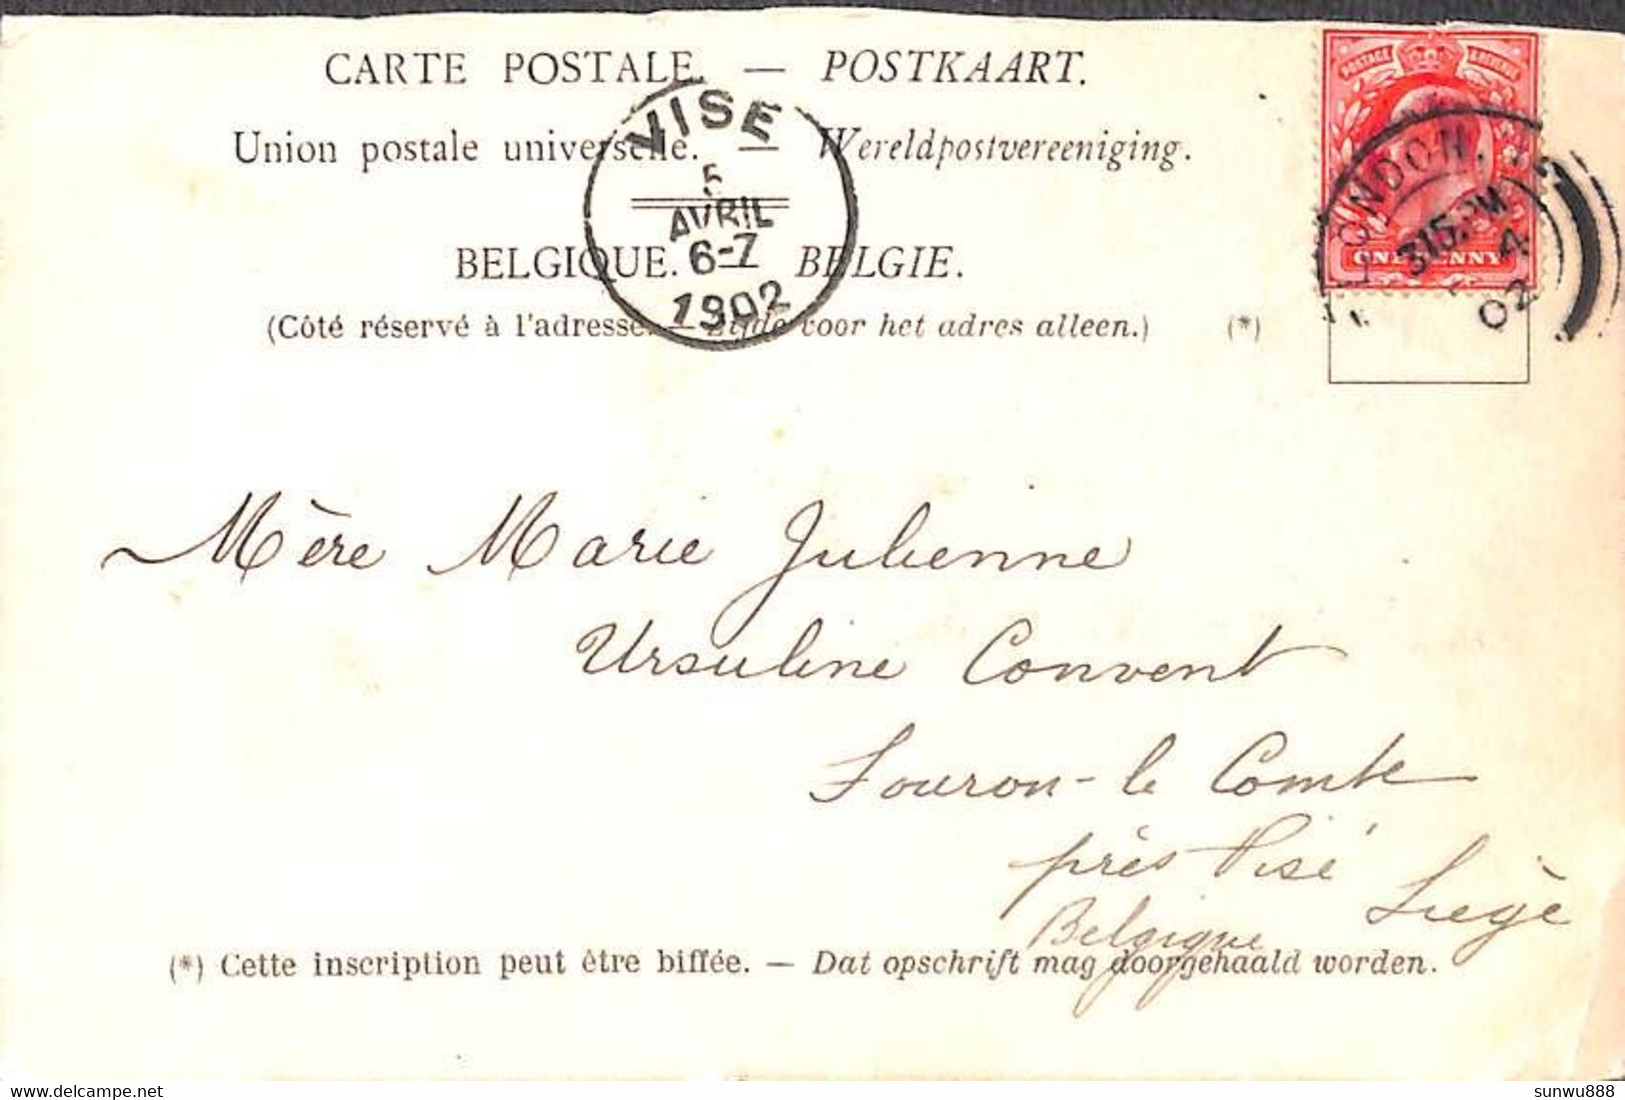 CARTE POSTALE. — POSTKAART.
Union postale universelle. — Wereldpostvereeniging.
BELGIQUE. — BELGIE.
(Côté réservé à l'adresse. — Zijde voor het adres alleen.) (*)
VISE
5
AVRIL
6-7
1902
POSTAGE & REVENUE
ONE PENNY
LONDON.
315.PM
4
02
Mère Marie Julienne
Ursuline Convent
Fouron-le Comte
près Visé
Liège
Belgique
(*) Cette inscription peut être biffée. — Dat opschrift mag doorgehaald worden.
delcampe.net
sunwu888